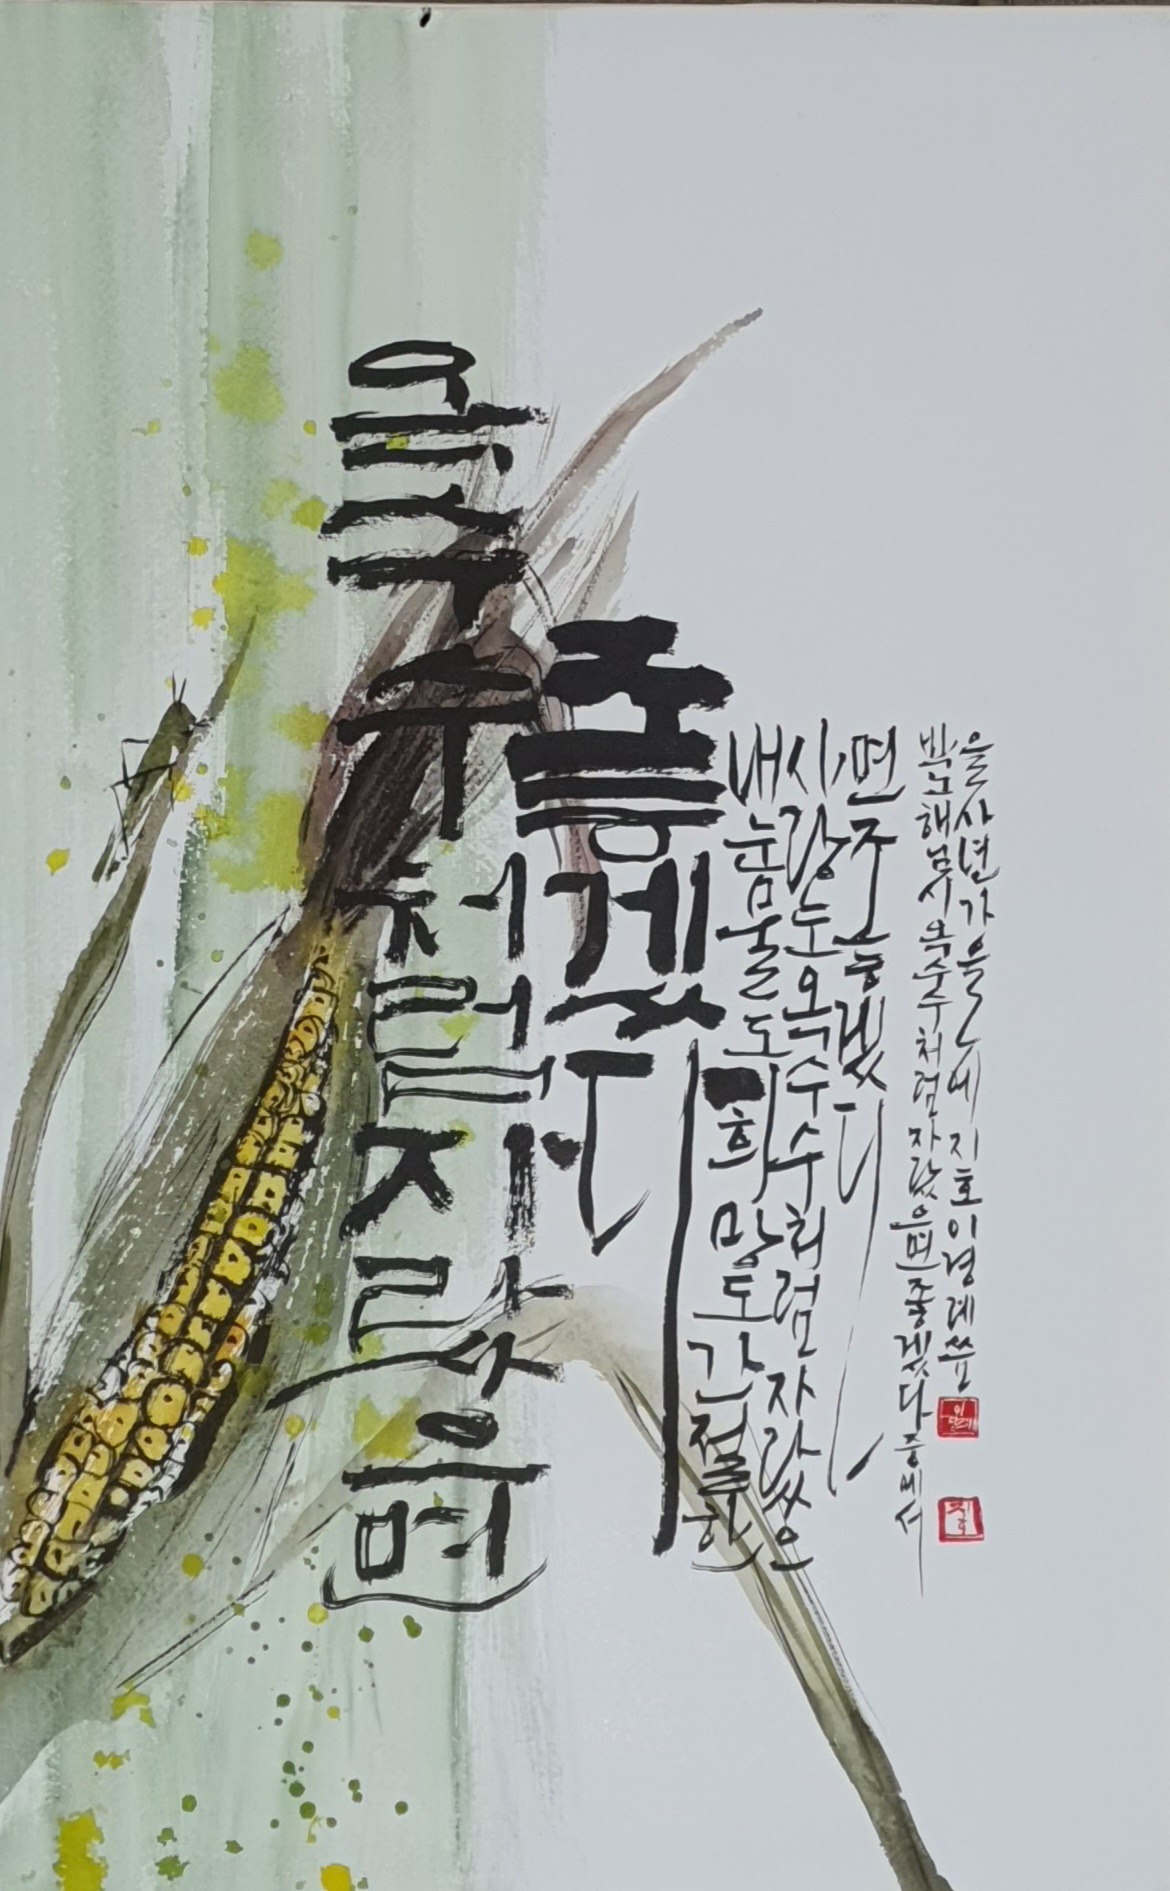 옥수수처럼자랐으면
좋겠다
내눈물도희망도간절한
사랑도옥수수처럼자랐으
면좋겠다
박노해님시옥수수처럼자랐으면좋겠다중에서
을사년가을에지호이경례씀